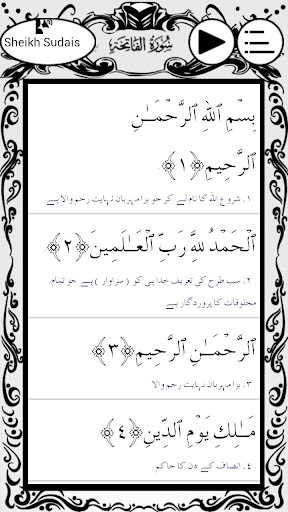 Sheikh Sudais
سُورَةُ الفَاتِحَةِ
بِسْمِ ٱللَّهِ ٱلرَّحْمَـٰنِ
ٱلرَّحِيمِ ﴿١﴾
١. شروع الله کا نام لے کر جو بڑا مہربان نہایت رحم والا ہے
ٱلْحَمْدُ لِلَّهِ رَبِّ ٱلْعَـٰلَمِينَ ﴿٢﴾
٢. سب طرح کی تعریف خدا ہی کو (سزاوار) ہے جو تمام
مخلوقات کا پروردگار ہے
ٱلرَّحْمَـٰنِ ٱلرَّحِيمِ ﴿٣﴾
٣. بڑا مہربان نہایت رحم والا
مَـٰلِكِ يَوْمِ ٱلدِّينِ ﴿٤﴾
٤. انصاف کے دن کا حاکم